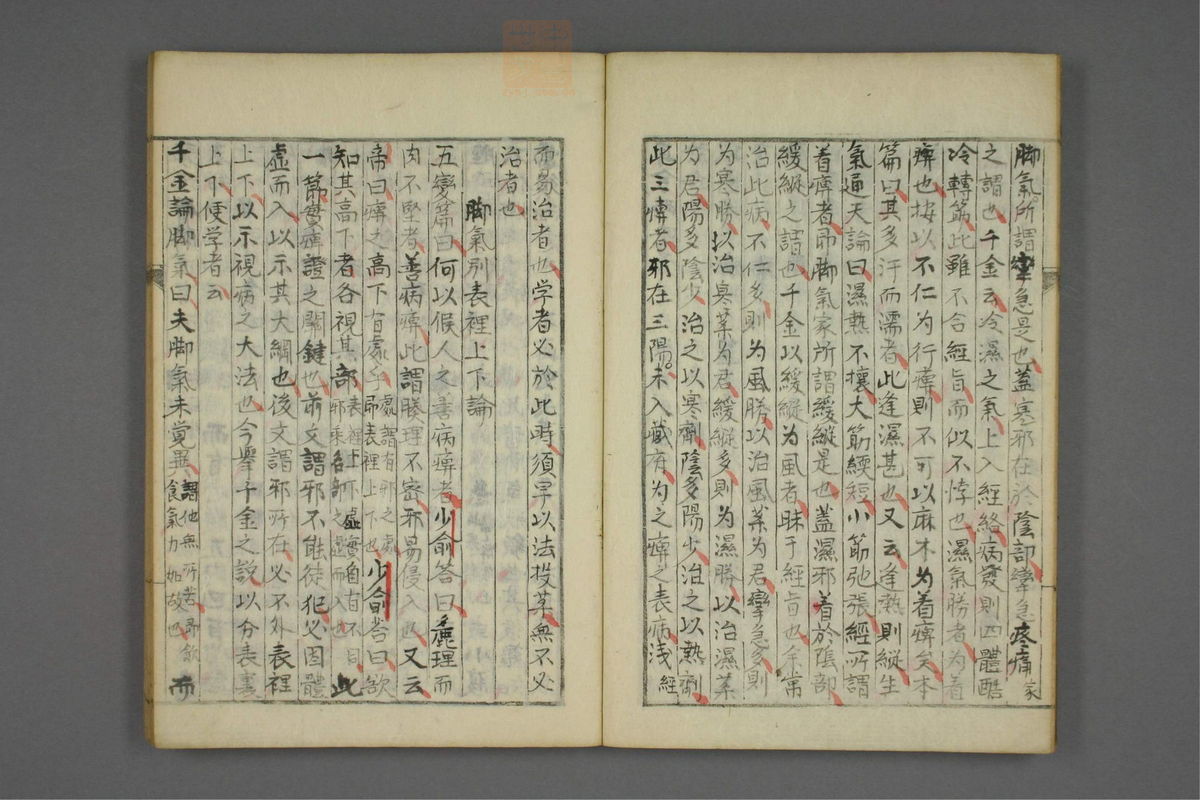 脚氣所謂攣急是也蓋寒邪在於陰部攣急疼痛家
之謂也千金云冷濕之氣上入經絡病發則四體酷
冷轉筋此雖不合經旨而似不悖也濕氣勝者為着
痺也按以不仁為行痺則不可以麻木為着痺矣本
篇曰其多汗而濡者此逢濕甚也又云逢熱則縱生
氣通天論曰濕熱不攘大筋緛短小筋弛張經所謂
着痺者即脚氣家所謂緩縱是也蓋濕邪着於陰部
緩縱之謂也千金以緩縱為風者昧于經旨也余常
治此病不仁多則為風勝以治風藥為君攣急多則
為寒勝以治寒藥為君緩縱多則為濕勝以治濕藥
為君陽多陰少治之以寒劑陰多陽少治之以熱劑
此三痺者邪在三陽未入藏府為之痺之表病淺經
而易治者也学者必於此時須早以法投藥無不必
治者也
脚氣別表裡上下論
五變篇曰何以候人之善病痺者少俞答曰麁理而
肉不堅者善病痺此謂腠理不密邪易侵入也又云
帝曰痺之高下有處乎處謂有邪之處即表裡上下也少俞答曰欲
知其高下者各視其部表裡上下虛實自有不同邪乘各部之虛而入也此
一節實痺證之關鍵也前文謂邪不能徒犯必因體
虛而入以示其大綱也後文謂邪所在必不外表裡
上下以示視病之大法也今舉千金之説以分表裏
上下便学者云
千金論脚氣曰夫脚氣未覚異謂他無所苦即飲食氣力如故也而